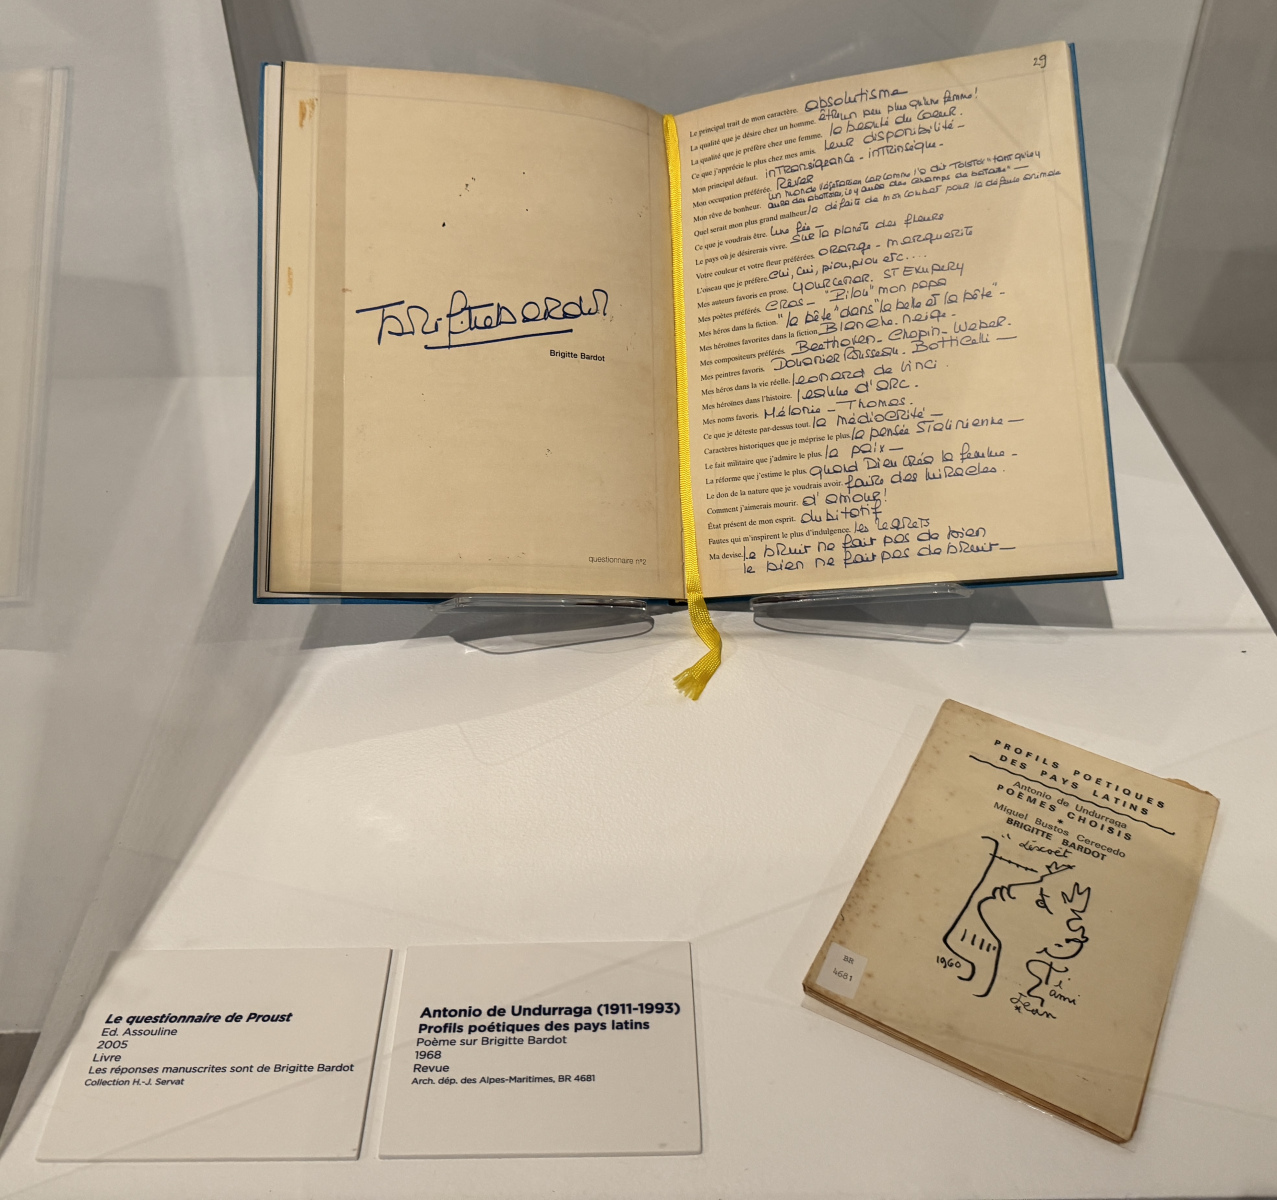 Brigitte Bardot
Brigitte Bardot
questionnaire n°2
29
Le principal trait de mon caractère. absolutisme
La qualité que je désire chez un homme. être un peu plus qu'une femme!
La qualité que je préfère chez une femme. la beauté du cœur.
Ce que j'apprécie le plus chez mes amis. leur disponibilité-
Mon principal défaut. intransigeance - intrinsèque-
Mon occupation préférée. Rêver
Mon rêve de bonheur. un monde végétarien car comme l'a dit Tolstoï "tant qu'il y
aura des abattoirs, il y aura des champs de bataille"-
Quel serait mon plus grand malheur. la défaite de mon combat pour la défense animale
Ce que je voudrais être. Une fée-
Le pays où je désirerais vivre. Sur la planète des fleurs
Votre couleur et votre fleur préférées. orange - marguerite
L'oiseau que je préfère. Cui, cui, piou, piou etc....
Mes auteurs favoris en prose. Yourcenar. St Exupery
Mes poètes préférés. Cros- "Pilou" mon papa
Mes héros dans la fiction. "la bête" dans "la belle et la bête"-
Mes héroïnes favorites dans la fiction. Blanche. neige-
Mes compositeurs préférés. Beethoven- Chopin- Weber.
Mes peintres favoris. Douanier Rousseau. Botticelli-
Mes héros dans la vie réelle. Leonard de Vinci.
Mes héroïnes dans l'histoire. Jeanne d'Arc.
Mes noms favoris. Mélanie - Thomas.
Ce que je déteste par-dessus tout. la médiocrité-
Caractères historiques que je méprise le plus. la pensée Stalinienne-
Le fait militaire que j'admire le plus. la paix-
La réforme que j'estime le plus. quand Dieu créa la femme-
Le don de la nature que je voudrais avoir. faire des miracles.
Comment j'aimerais mourir. d'amour!
État présent de mon esprit. dubitatif
Fautes qui m'inspirent le plus d'indulgence. les regrets
Ma devise. le bruit ne fait pas de bien
le bien ne fait pas de bruit-
PROFILS POÉTIQUES
DES PAYS LATINS
Antonio de Undurraga
POÈMES CHOISIS
*
Miguel Bustos Cerecedo
BRIGITTE BARDOT
et
1960
ami
Jean
*
BR
4681
Le questionnaire de Proust
Ed. Assouline
2005
Livre
Les réponses manuscrites sont de Brigitte Bardot
Collection H.-J. Servat
Antonio de Undurraga (1911-1993)
Profils poétiques des pays latins
Poème sur Brigitte Bardot
1968
Revue
Arch. dép. des Alpes-Maritimes, BR 4681